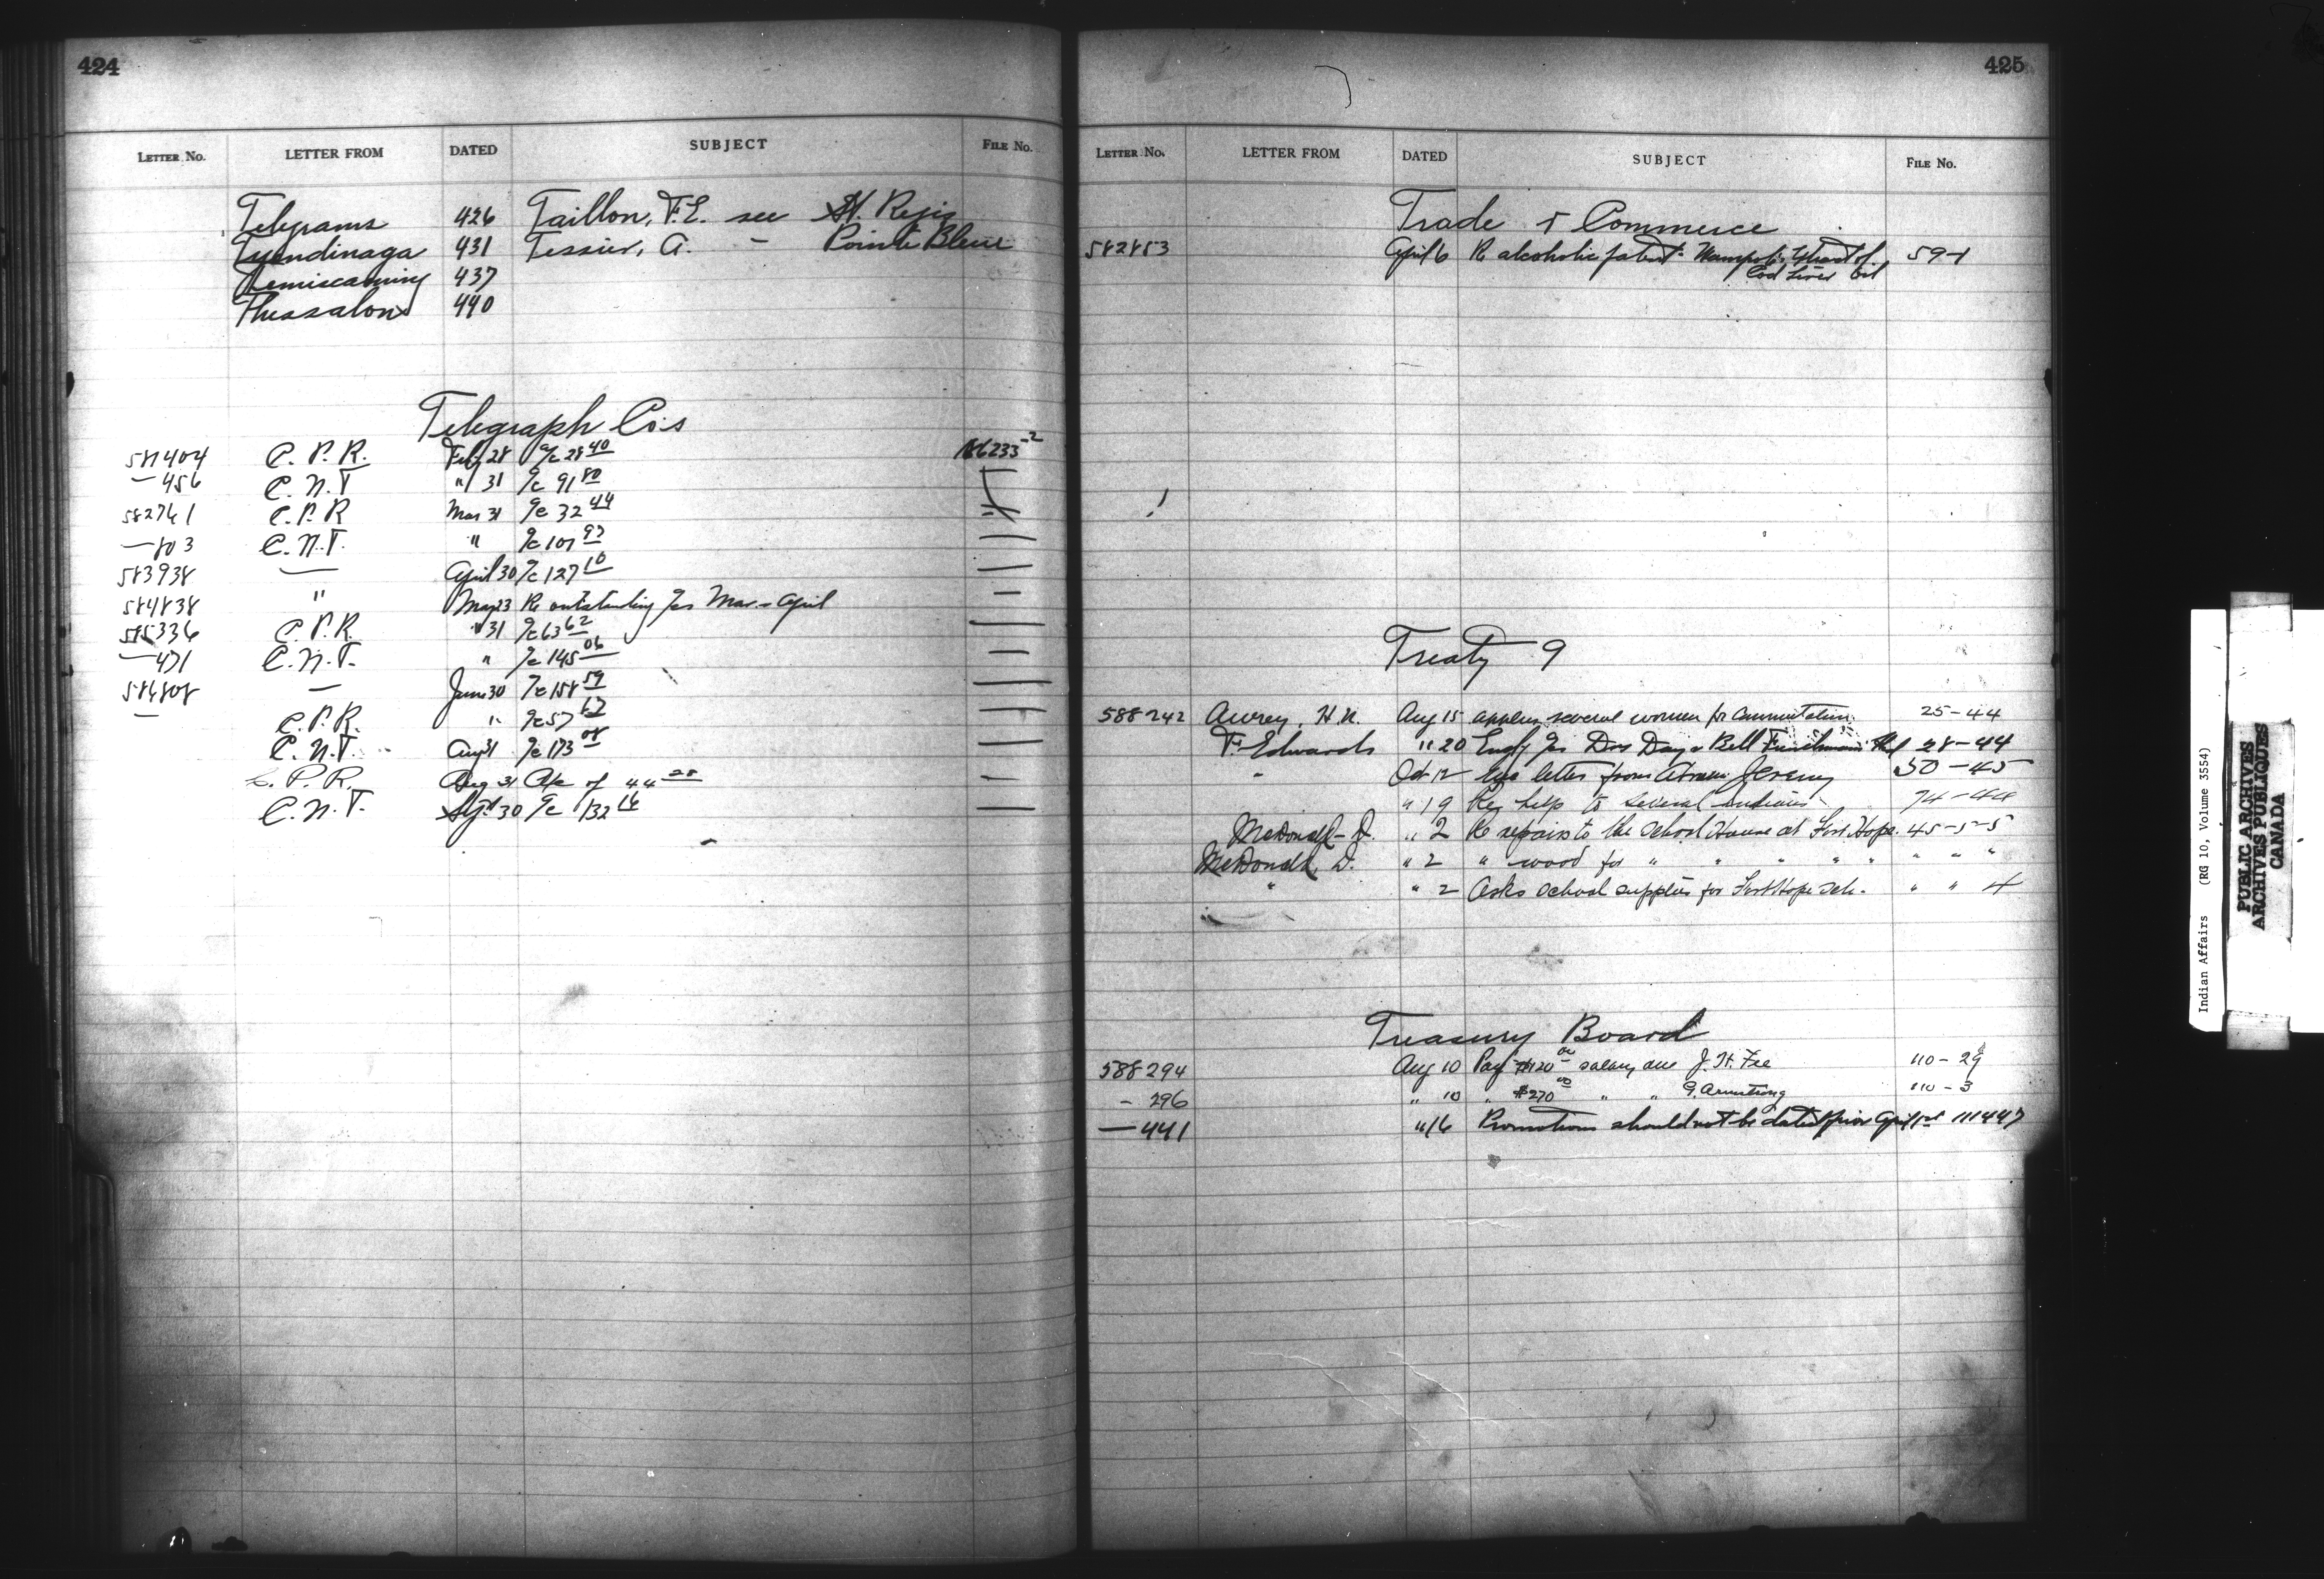 424
LETTER No. LETTER FROM DATED SUBJECT FILE No.
Telegrams 426 Taillon, F.E. see St. Regis
Tyendinaga 431 Tessier, A. – Pointe Bleue
Temiscaming 437
Thessalon 440
Telegraph Co's
581404 C.P.R. Feb 28 a/c 28 40 186233-2
— 456 C.N.T " 31 a/c 91 80
582761 C.P.R Mar 31 a/c 32 44
— 803 C.N.T. " a/c 107 93
583938 — April 30 a/c 127 10 —
584838 " May 23 Re outstanding a/cs Mar. & April —
585336 C.P.R. " 31 a/c 63 62 —
— 471 C.N.T. " a/c 145 06 —
586808 — June 30 a/c 158 59 —
— C.P.R. " a/c 57 67 —
C.N.T. Aug 31 a/c 173 08 —
C.P.R. Aug 31 a/c of 44 28 —
C.N.T. Sept 30 a/c 132 16 —
425
LETTER No. LETTER FROM DATED SUBJECT FILE No.
Trade & Commerce
582853 April 6 Re alcoholic patent Wampole's Extract of 59-1
Cod Liver Oil
Treaty 9
588242 Aurey, H.N. Aug 15 applies several women for commutation 25-44
F. Edwards " 20 a/cs Drs Day & Bell 28-44
" Oct 12 letter from Jeremy 50-45
" 19 Req help to several Indians 74-44
McDonald – D. " 2 Re repairs to the School House at Fort Hope. 45-5-5
McDonald, D. " 2 " wood for " " " " " " " "
" " 2 Asks school supplies for Fort Hope sch. " " 4
Treasury Board
588294 Aug 10 Pay $120 00 salary due J.H. Fee 110-29
- 296 " 10 " $270 00 " " G. Armstrong 110-3
— 441 " 16 Promotions should not be dated prior April 1st 111447
Indian Affairs (RG 10, Volume 3554)
PUBLIC ARCHIVES
ARCHIVES PUBLIQUES
CANADA